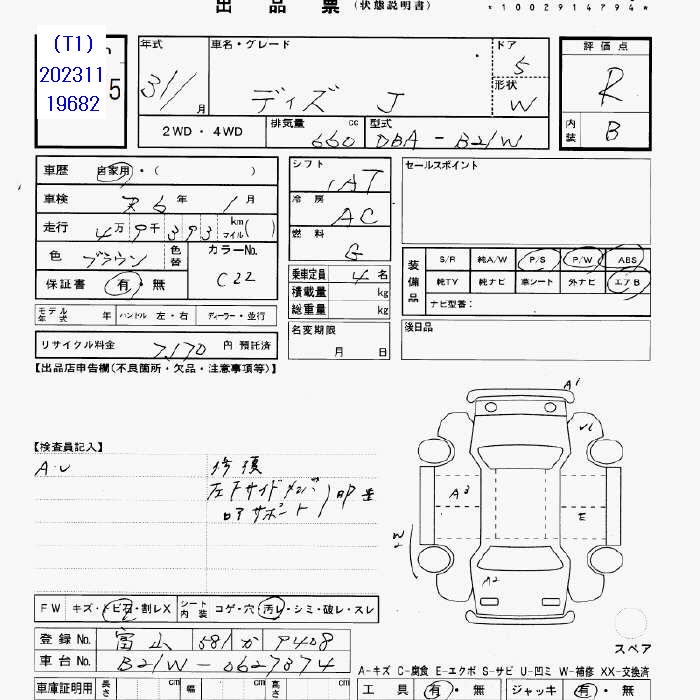 出品票 (状態説明書)
*1002914794*
(T1)
202311
19682
5
年式 31/1 月
車名・グレード デイズ J
ドア 5
形状 W
評価点 R
内装 B
2WD・4WD
排気量 660 cc
型式 DBA-B21W
車歴 自家用・( )
車検 R6 年 1 月
走行 4万9千393 km マイル( )
色 ブラウン 色替 カラーNo. C22
保証書 有・無
シフト IAT
冷房 AC
燃料 G
乗車定員 4 名
積載量 kg
総重量 kg
セールスポイント
装備品 S/R 純A/W P/S P/W ABS
純TV 純ナビ 革シート 外ナビ エアB
ナビ型番:
モデル年式 年 ハンドル 左・右 ディーラー・並行
名変期限 月 日
後日品
リサイクル料金 7,170 円 預託済
【出品店申告欄(不良箇所・欠品・注意事項等)】
A1
【検査員記入】
A・U
修復
左Fサイドメンバ
ロアサポート
A3
E
W2
A2
FW キズ・トビ石・割レX シート内装 コゲ・穴・汚レ・シミ・破レ・スレ
登録No. 富山 581 か 9408
車台No. B21W-0627374
スペア
A-キズ C-腐食 E-エクボ S-サビ U-凹ミ W-補修 XX-交換済
車庫証明用 長さ cm 幅 cm 高さ cm
工具 有・無 ジャッキ 有・無